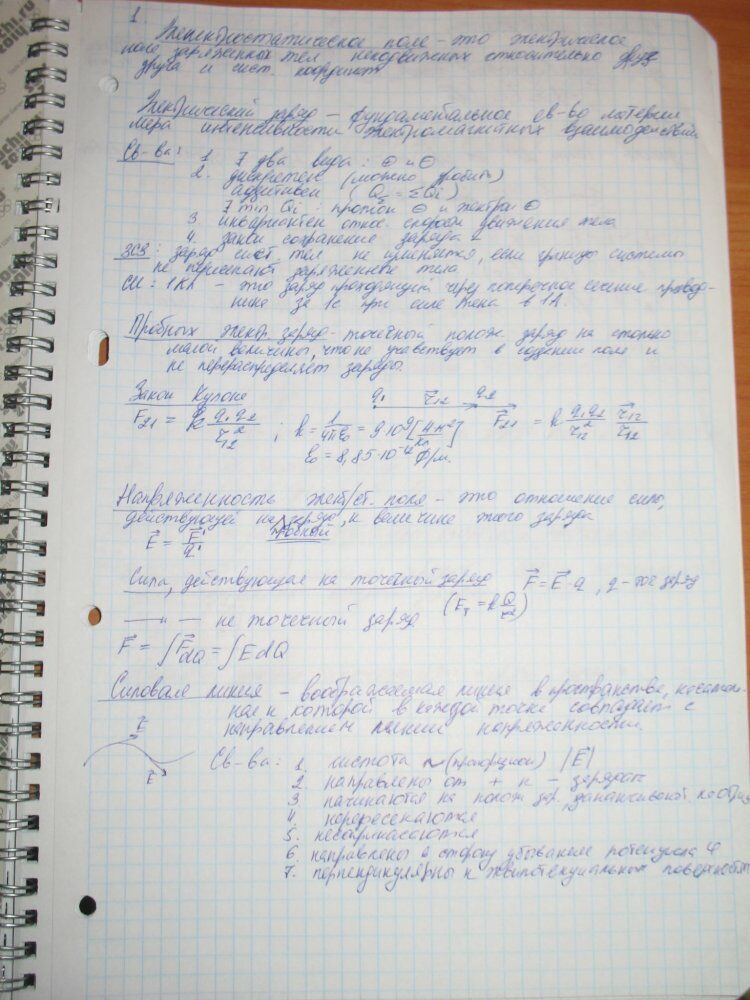 1.
Электростатическое поле - это электрическое
поле заряженных тел неподвижных относительно друг
друга и сист. координат
Электрический заряд - фундаментальное св-во материи
мера интенсивности электромагнитных взаимодействий
Св-ва: 1. ∃ два вида: ⊕ и ⊖
2. дискретен (можно дробить)
аддитивен (QΣ = ΣQi)
∃ min Qi : протон ⊕ и электрон ⊖
3 инвариантен относ. скорости движения тела
4. закон сохранения заряда
ЗСЗ: заряд сист. тел не изменяется, если границы системы
не пересекают заряженные тела.
СИ: 1Кл - это заряд проходящий через поперечное сечение провод-
ника за 1с при силе тока в 1А.
Пробный электр. заряд - точечный полож. заряд на столько
малой величины, что не участвует в создании поля и
не перераспределяет заряды.
Закон Кулона q1 r⃗12 q2
F21 = k q1 q2 / r12² ; k = 1/4πε0 = 9·10⁹ [Н·м²/Кл] F⃗21 = k q1 q2 / r12² r⃗12 / r12
ε0 = 8,85·10⁻¹² Ф/м.
Напряженность элект/ст. поля - это отношение силы,
действующей на заряд, к величине этого заряда
пробный
E⃗ = F⃗' / q'
Сила, действующая на точечный заряд F⃗ = E⃗·q, q - точ заряд
—〃— не точечный заряд (Eт = k Q/r²)
F⃗ = ∫F⃗dQ = ∫EdQ
Силовая линия - воображаемая линия в пространстве, касатель-
ная к которой в каждой точке совпадает с
направлением линии напряженности.
E⃗
E⃗
Св-ва: 1. чистота ~ (пропорцион) |E⃗|
2. направлены от + к - зарядам
3 начинаются на полож зар. заканчивают. на отриц
4. непересекаются
5. несоприкасаются
6. направлены в сторону убывания потенциала φ
7. перпендикулярны к эквипотенциальным поверхностям
sochi.ru